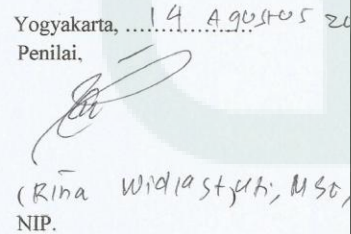 Yogyakarta, ....14 Agustus 20
Penilai,
(Rina Widiastuti, MSc,
NIP.